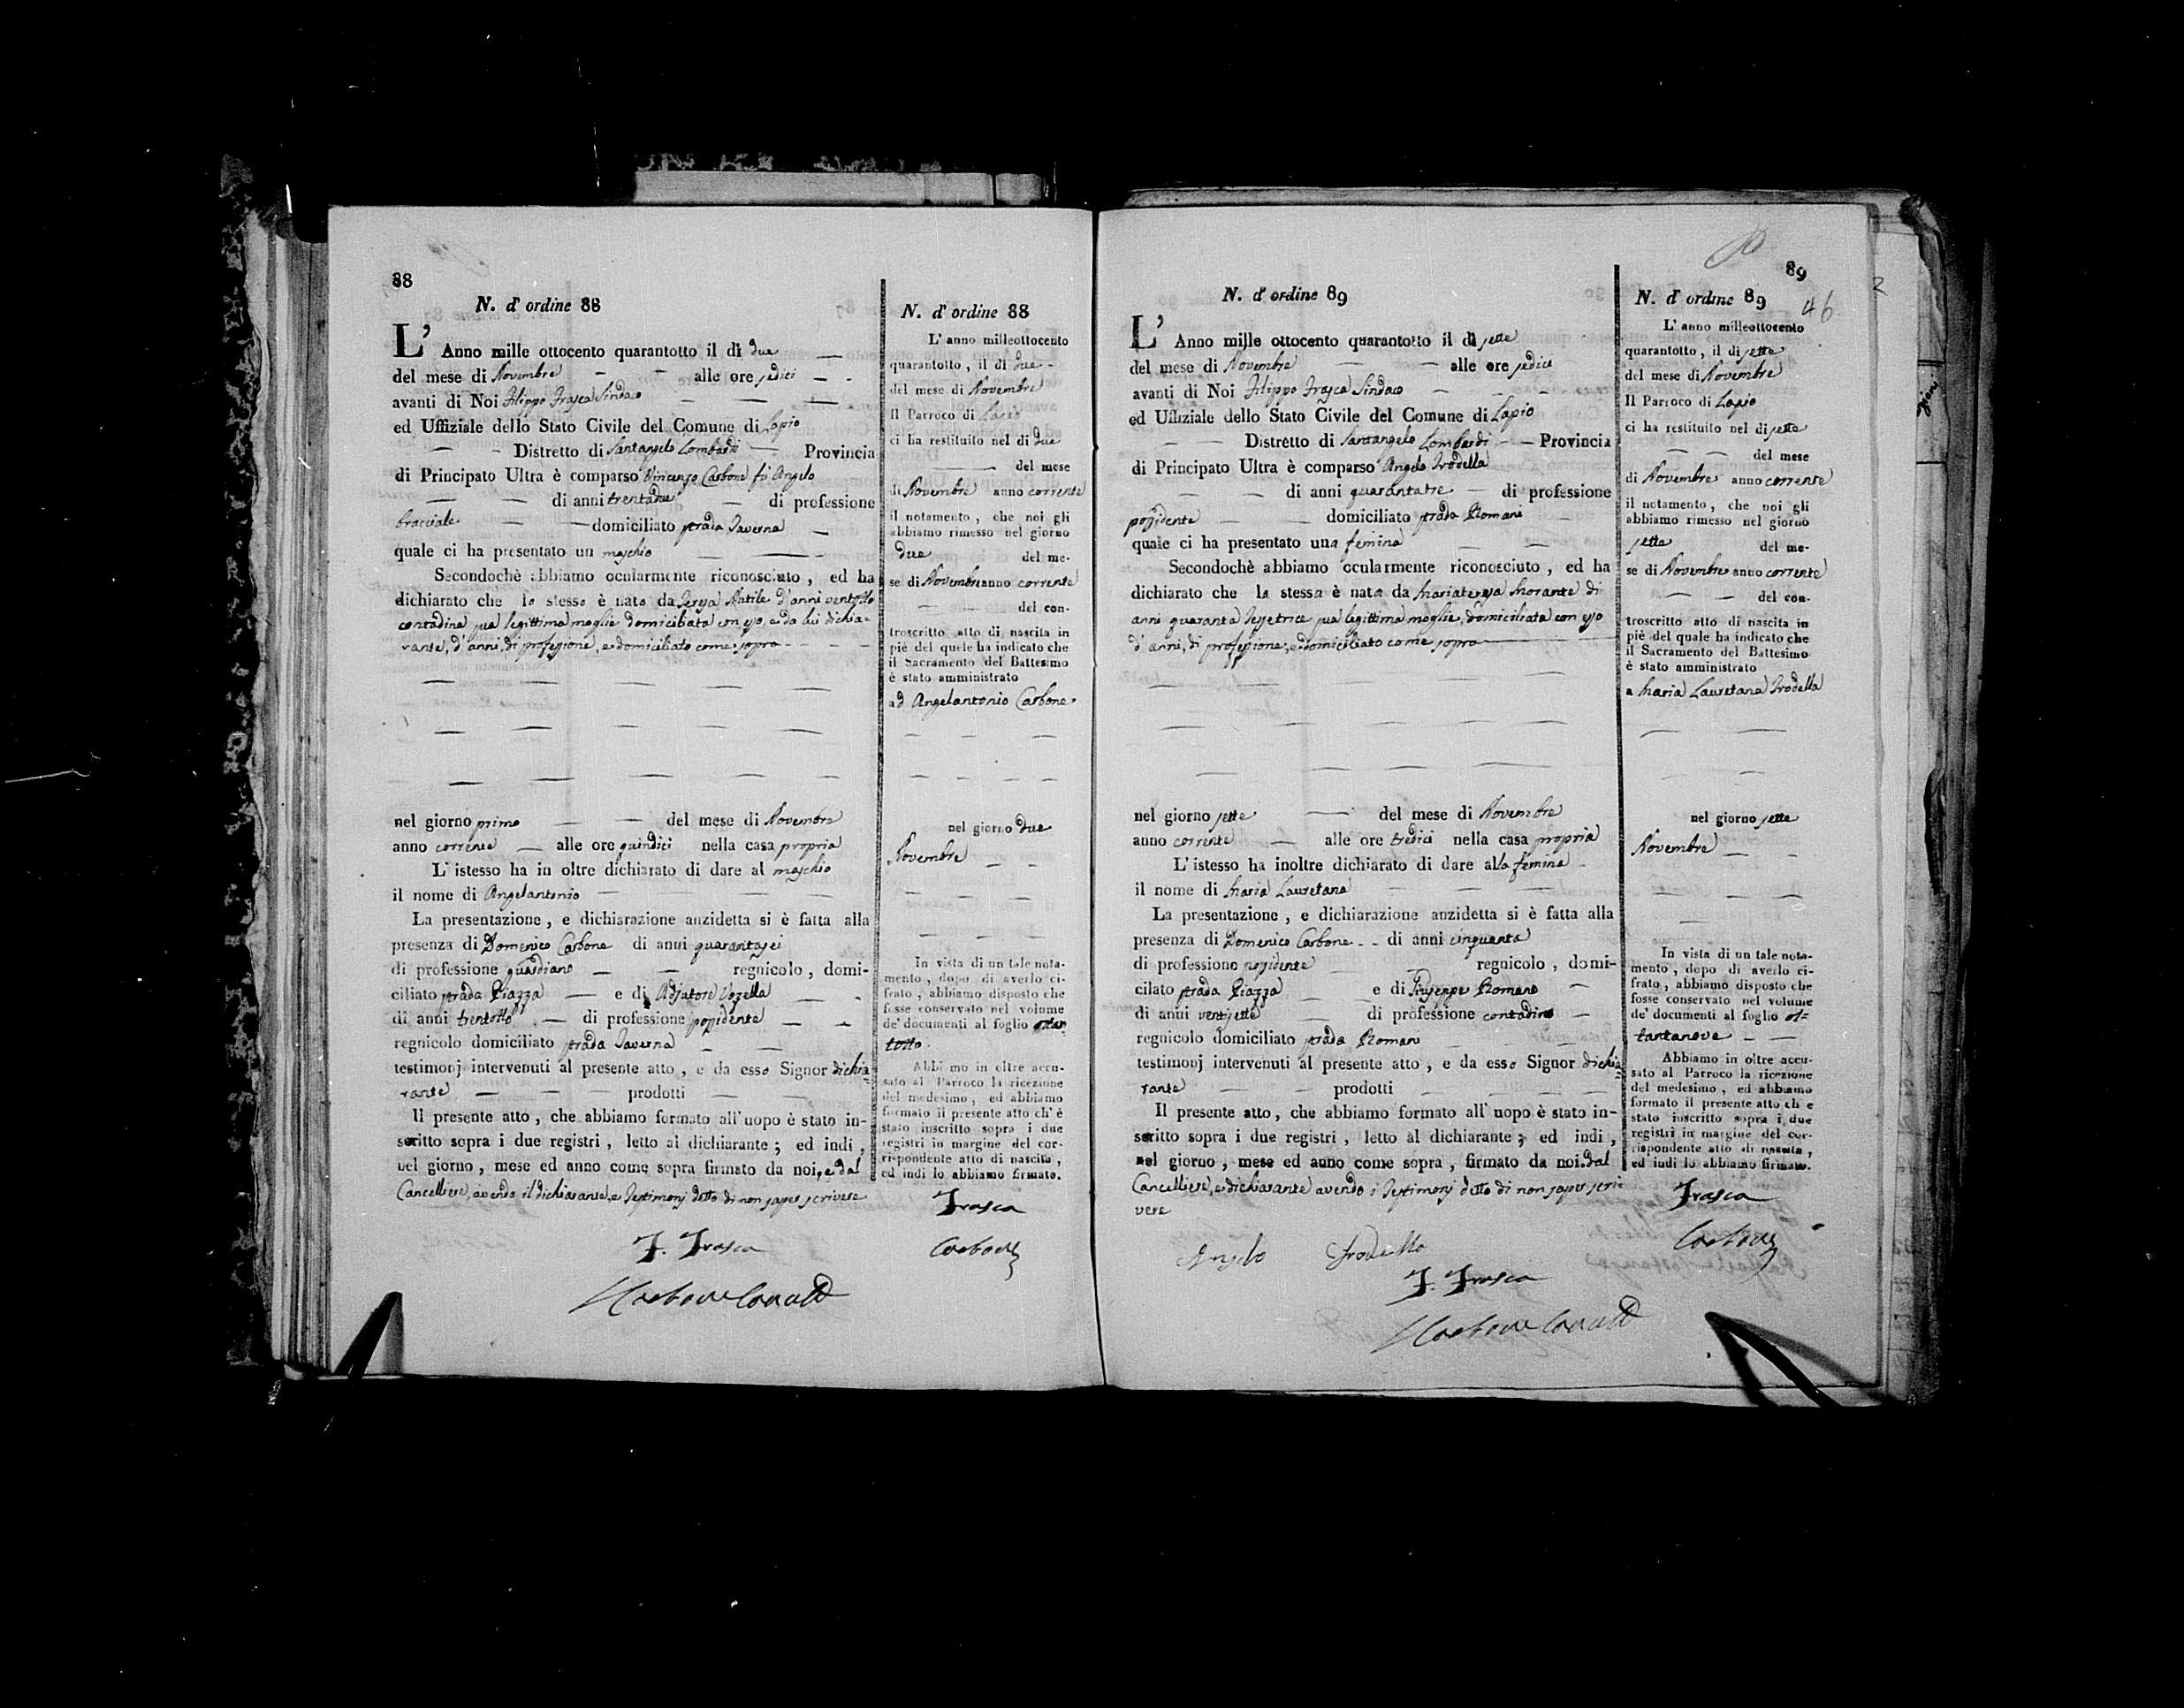 88
N. d' ordine 88
L' Anno mille ottocento quarantotto il dì due
del mese di Novembre alle ore sedici
avanti di Noi Filippo Frasca Sindaco
ed Uffiziale dello Stato Civile del Comune di Lapio
Distretto di Santangelo Lombardi Provincia
di Principato Ultra è comparso Vincenzo Carbone fu Angelo
di anni trentadue di professione
bracciale domiciliato strada Taverna
quale ci ha presentato un maschio
Secondochè abbiamo ocularmente riconosciuto, ed ha
dichiarato che lo stesso è nato da Teresa Natile d'anni ventotto
contadina sua legittima moglie domiciliata con esso, e da lui dichia-
rante, d'anni, di professione, e domiciliato come sopra
nel giorno primo del mese di Novembre
anno corrente alle ore quindici nella casa propria
L' istesso ha in oltre dichiarato di dare al maschio
il nome di Angelantonio
La presentazione, e dichiarazione anzidetta si è fatta alla
presenza di Domenico Carbone di anni quarantasei
di professione guardiano regnicolo, domi-
ciliato strada Piazza e di Adjutore Vozella
di anni trentotto di professione possidente
regnicolo domiciliato strada Taverna
testimonj intervenuti al presente atto, e da esso Signor dichia
rante prodotti
Il presente atto, che abbiamo formato all' uopo è stato in-
scritto sopra i due registri, letto al dichiarante; ed indi,
nel giorno, mese ed anno come sopra firmato da noi, e dal
Cancelliere, avendo il dichiarante, e Testimonj detto di non saper scrivere
F. Frasca
N. d' ordine 88
L' anno milleottocento
quarantotto, il dì due
del mese di Novembre
Il Parroco di Lapio
ci ha restituito nel dì due
del mese
di Novembre anno corrente
il notamento, che noi gli
abbiamo rimesso nel giorno
due del me-
se di Novembre anno corrente
del con-
troscritto atto di nascita in
piè del quale ha indicato che
il Sacramento del Battesimo
è stato amministrato
ad Angelantonio Carbone
nel giorno due
Novembre
In vista di un tale nota-
mento, dopo di averlo ci-
frato, abbiamo disposto che
fosse conservato nel volume
de' documenti al foglio ottan
totto
Abbiamo in oltre accu-
sato al Parroco la ricezione
del medesimo, ed abbiamo
formato il presente atto ch' è
stato inscritto sopra i due
registri in margine del cor-
rispondente atto di nascita,
ed indi lo abbiamo firmato.
Frasca
Carbone
89
46
2
N. d' ordine 89
L' Anno mille ottocento quarantotto il dì sette
del mese di Novembre alle ore sedici
avanti di Noi Filippo Frasca Sindaco
ed Uffiziale dello Stato Civile del Comune di Lapio
Distretto di Santangelo Lombardi Provincia
di Principato Ultra è comparso Angelo Trodella
di anni quarantatre di professione
possidente domiciliato strada Romani
quale ci ha presentato una femina
Secondochè abbiamo ocularmente riconosciuto, ed ha
dichiarato che la stessa è nata da Mariateresa Morante di
anni quaranta Tessetrice sua legittima moglie, domiciliata con esso
d' anni, di professione, e domiciliato come sopra
nel giorno sette del mese di Novembre
anno corrente alle ore tredici nella casa propria
L' istesso ha inoltre dichiarato di dare alla femina
il nome di Maria Lauretana
La presentazione, e dichiarazione anzidetta si è fatta alla
presenza di Domenico Carbone di anni cinquanta
di professione possidente regnicolo, domi-
ciliato strada Piazza e di Giuseppe Romano
di anni ventisette di professione contadino
regnicolo domiciliato strada Romani
testimonj intervenuti al presente atto, e da esso Signor dichia
rante prodotti
Il presente atto, che abbiamo formato all' uopo è stato in-
scritto sopra i due registri, letto al dichiarante; ed indi,
nel giorno, mese ed anno come sopra, firmato da noi, dal
Cancelliere, e dichiarante avendo i Testimonj detto di non saper scri
vere
Angelo Trodella
F. Frasca
N. d' ordine 89
L' anno milleottocento
quarantotto, il dì sette
del mese di Novembre
Il Parroco di Lapio
ci ha restituito nel dì sette
del mese
di Novembre anno corrente
il notamento, che noi gli
abbiamo rimesso nel giorno
sette del me-
se di Novembre anno corrente
del con-
troscritto atto di nascita in
piè del quale ha indicato che
il Sacramento del Battesimo
è stato amministrato
a Maria Lauretana Trodella
nel giorno sette
Novembre
In vista di un tale nota-
mento, dopo di averlo ci-
frato, abbiamo disposto che
fosse conservato nel volume
de' documenti al foglio ot=
tantanove
Abbiamo in oltre accu-
sato al Parroco la ricezione
del medesimo, ed abbiamo
formato il presente atto ch è
stato inscritto sopra i due
registri in margine del cor-
rispondente atto di nascita,
ed indi lo abbiamo firmato.
Frasca
Carbone